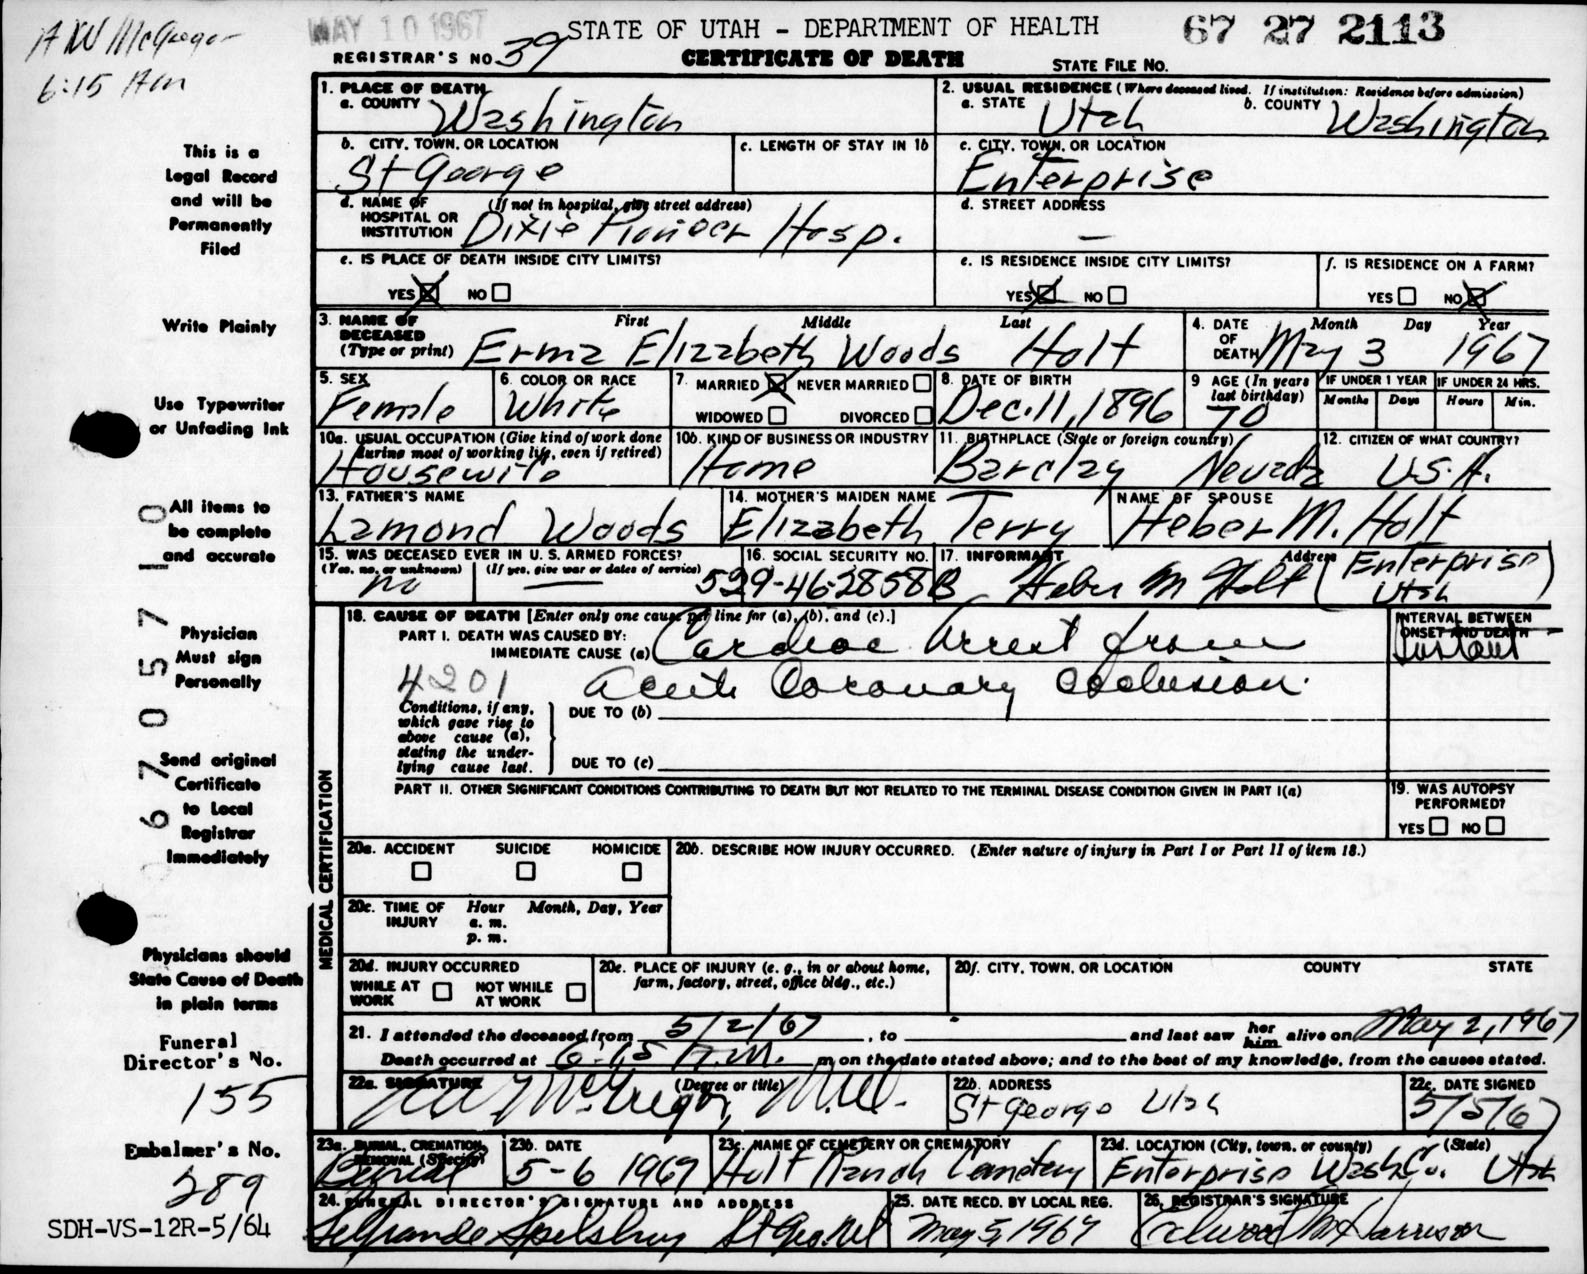 A W McGregor
6:15 Am
MAY 10 1967
STATE OF UTAH - DEPARTMENT OF HEALTH
67 27 2113
REGISTRAR'S NO. 39
CERTIFICATE OF DEATH
STATE FILE NO.
This is a
Legal Record
and will be
Permanently
Filed
Write Plainly
Use Typewriter
or Unfading Ink
All items to
be complete
and accurate
Physician
Must sign
Personally
Send original
Certificate
to Local
Registrar
Immediately
Physicians should
State Cause of Death
in plain terms
Funeral
Director's No.
155
Embalmer's No.
289
SDH-VS-12R-5/64
067057 10
1. PLACE OF DEATH
a. COUNTY Washington
2. USUAL RESIDENCE (Where deceased lived. If institution: Residence before admission)
a. STATE Utah b. COUNTY Washington
b. CITY, TOWN, OR LOCATION St George
c. LENGTH OF STAY IN 1b
c. CITY, TOWN, OR LOCATION Enterprise
d. NAME OF HOSPITAL OR INSTITUTION (If not in hospital, give street address) Dixie Pioneer Hosp.
d. STREET ADDRESS —
e. IS PLACE OF DEATH INSIDE CITY LIMITS?
YES X NO
e. IS RESIDENCE INSIDE CITY LIMITS?
YES X NO
f. IS RESIDENCE ON A FARM?
YES NO X
3. NAME OF DECEASED (Type or print) First Middle Last
Erma Elizabeth Woods Holt
4. DATE OF DEATH Month Day Year
May 3 1967
5. SEX Female
6. COLOR OR RACE White
7. MARRIED X NEVER MARRIED
WIDOWED DIVORCED
8. DATE OF BIRTH Dec. 11, 1896
9 AGE (In years last birthday) 70
IF UNDER 1 YEAR Months Days
IF UNDER 24 HRS. Hours Min.
10a. USUAL OCCUPATION (Give kind of work done during most of working life, even if retired) Housewife
10b. KIND OF BUSINESS OR INDUSTRY Home
11. BIRTHPLACE (State or foreign country) Barclay Nevada
12. CITIZEN OF WHAT COUNTRY? U.S.A.
13. FATHER'S NAME Lamond Woods
14. MOTHER'S MAIDEN NAME Elizabeth Terry
NAME OF SPOUSE Heber M. Holt
15. WAS DECEASED EVER IN U. S. ARMED FORCES?
(Yes, no, or unknown) no (If yes, give war or dates of service) —
16. SOCIAL SECURITY NO. 529-46-2858B
17. INFORMANT Heber M Holt Address (Enterprise Utah)
MEDICAL CERTIFICATION
18. CAUSE OF DEATH [Enter only one cause per line for (a), (b), and (c).]
INTERVAL BETWEEN ONSET AND DEATH
PART I. DEATH WAS CAUSED BY:
IMMEDIATE CAUSE (a) Cardiac Arrest from Instant
4201 acute Coronary occlusion.
Conditions, if any, which gave rise to above cause (a), stating the underlying cause last.
DUE TO (b)
DUE TO (c)
PART II. OTHER SIGNIFICANT CONDITIONS CONTRIBUTING TO DEATH BUT NOT RELATED TO THE TERMINAL DISEASE CONDITION GIVEN IN PART I(a)
19. WAS AUTOPSY PERFORMED?
YES NO
20a. ACCIDENT SUICIDE HOMICIDE
20b. DESCRIBE HOW INJURY OCCURRED. (Enter nature of injury in Part I or Part II of item 18.)
20c. TIME OF INJURY Hour a. m. p. m. Month, Day, Year
20d. INJURY OCCURRED
WHILE AT WORK NOT WHILE AT WORK
20e. PLACE OF INJURY (e. g., in or about home, farm, factory, street, office bldg., etc.)
20f. CITY, TOWN, OR LOCATION COUNTY STATE
21. I attended the deceased from 5/2/67, to and last saw her him alive on May 2, 1967
Death occurred at 6:15 A.M. m on the date stated above; and to the best of my knowledge, from the causes stated.
22a. SIGNATURE (Degree or title) A W McGregor, M.D.
22b. ADDRESS St George Utah
22c. DATE SIGNED 5/5/67
23a. BURIAL, CREMATION, REMOVAL (Specify) Burial
23b. DATE 5-6 1967
23c. NAME OF CEMETERY OR CREMATORY Holt Ranch Cemetery
23d. LOCATION (City, town, or county) (State) Enterprise Wash Co. Utah
24. FUNERAL DIRECTOR'S SIGNATURE AND ADDRESS LeGrande Spilsbury St Geo. Ut
25. DATE RECD. BY LOCAL REG. May 5, 1967
26. REGISTRAR'S SIGNATURE M Harrison